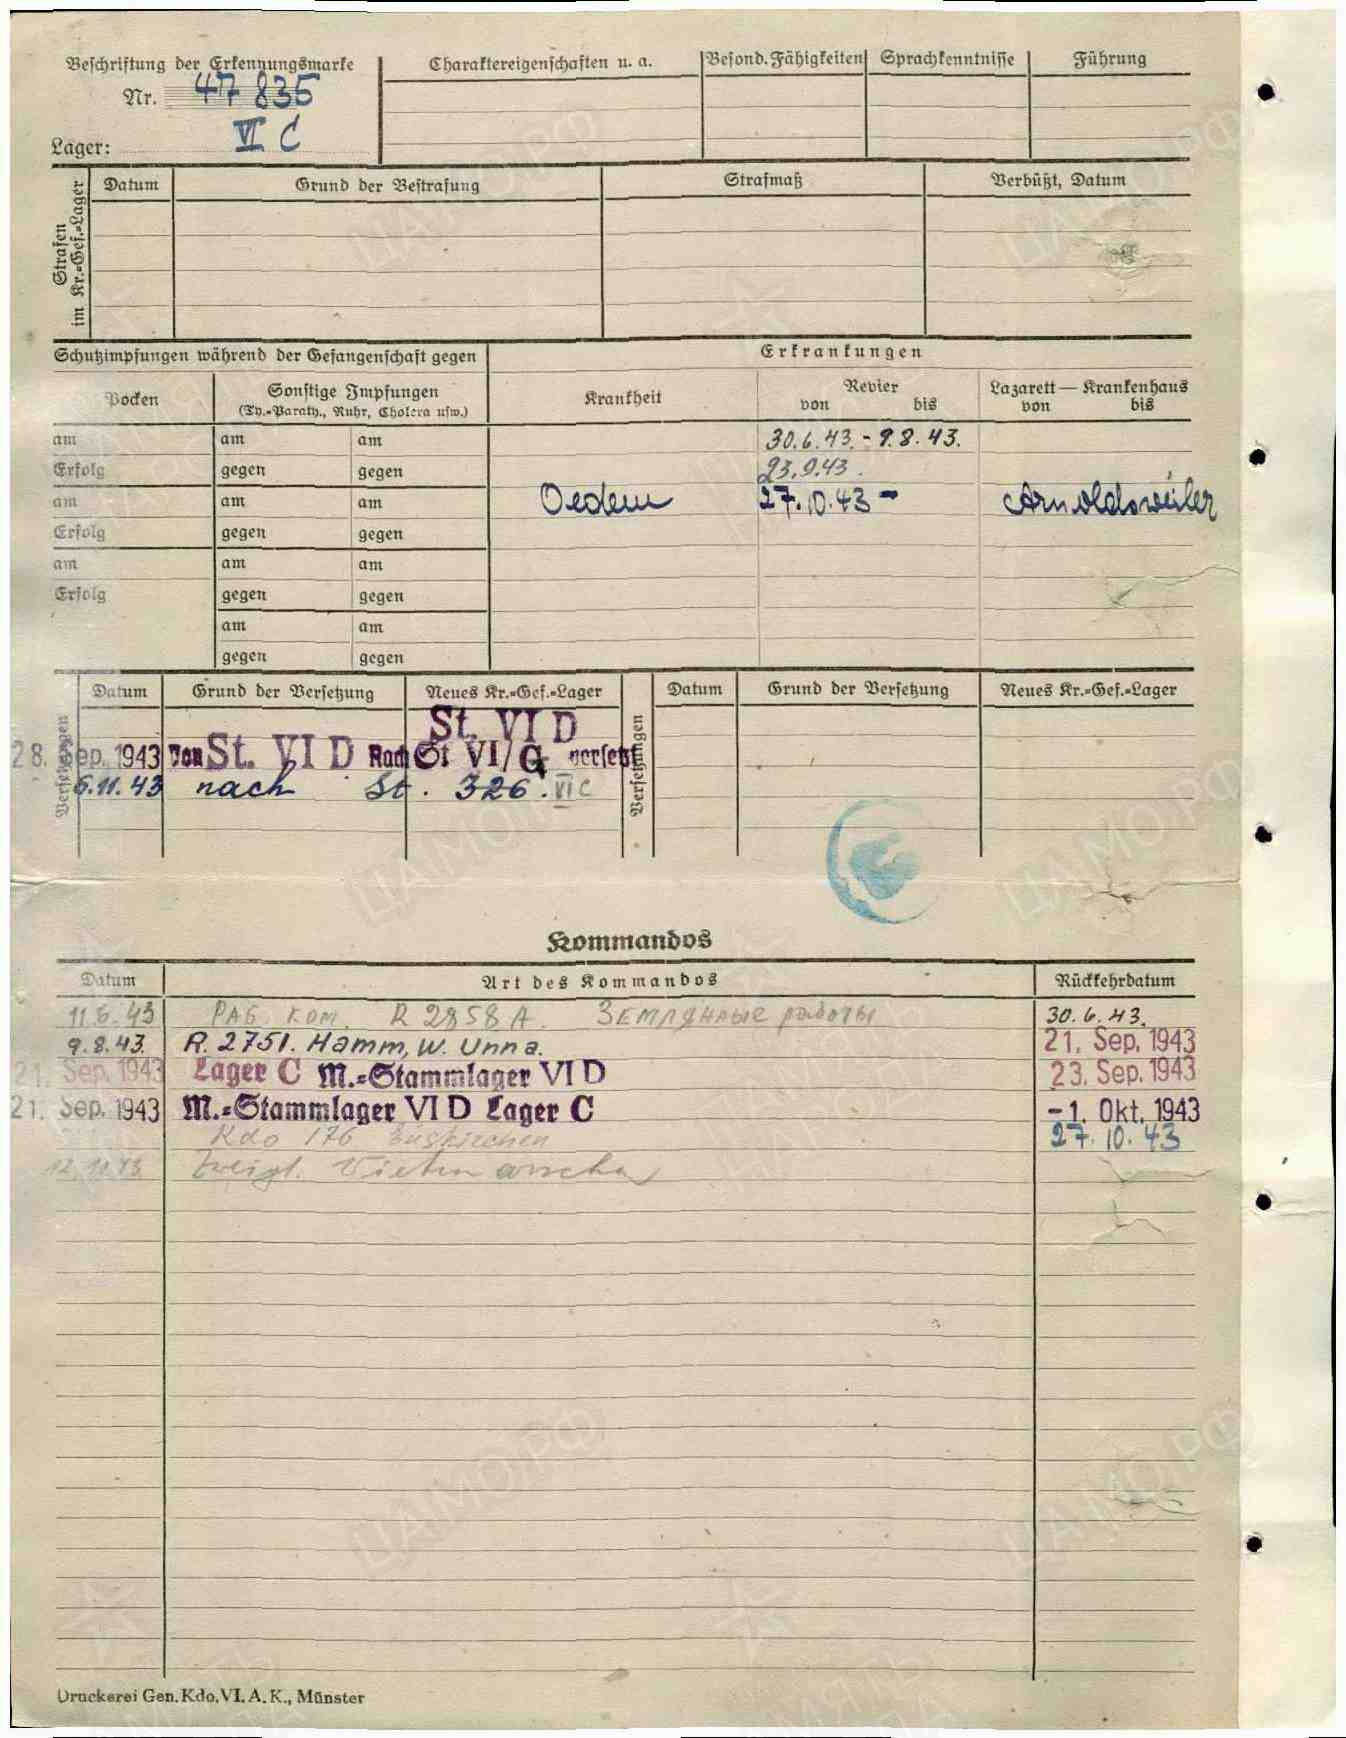 Beschriftung der Erkennungsmarke
Nr. 47 835
Lager: VI C
Charaktereigenschaften u. a.
Besond. Fähigkeiten
Sprachkenntnisse
Führung
Strafen im Kr.=Gef.=Lager
Datum
Grund der Bestrafung
Strafmaß
Verbüßt, Datum
Schutzimpfungen während der Gefangenschaft gegen
Erkrankungen
Pocken
Sonstige Impfungen
(Ty.=Paraty., Ruhr, Cholera usw.)
Krankheit
Revier
von bis
Lazarett — Krankenhaus
von bis
am am am
30.6.43. - 9.8.43.
Erfolg gegen gegen
23.9.43.
am am am
Oedem 27.10.43 - Arnoldsweiler
Erfolg gegen gegen
am am am
Erfolg gegen gegen
am am
gegen gegen
Versetzungen
Datum Grund der Versetzung Neues Kr.=Gef.=Lager
Versetzungen
Datum Grund der Versetzung Neues Kr.=Gef.=Lager
St. VI D
28. Sep. 1943 Von St. VI D Nach St VI/G versetzt
6.11.43 nach St. 326. VI C
Kommandos
Datum Art des Kommandos Rückkehrdatum
11.6.43 РАБ. КОМ. R 2858 A. ЗЕМЛЯНЫЕ работы 30.6.43.
9.8.43. R. 2751. Hamm, W. Unna. 21. Sep. 1943
21. Sep. 1943 Lager C M.=Stammlager VI D 23. Sep. 1943
21. Sep. 1943 M.=Stammlager VI D Lager C -1. Okt. 1943
Kdo 176 Euskirchen 27.10.43
12.10.43
Druckerei Gen. Kdo. VI. A. K., Münster